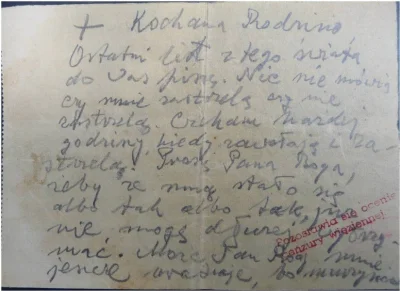 + Kochana Rodzino
Ostatni list z tego świata
do Was piszę. Nic nie mówią
czy mnie zastrzelą czy nie
zastrzelą. Czekam każdej
godziny kiedy zawołają i za-
strzelą. Proszę Pana Boga,
żeby ze mną stało się
albo tak albo tak, już
nie mogę dłużej wytrzy-
mać. Może Pan Bóg mnie
jeszcze
Pozostawia się ocenie
cenzury więziennej